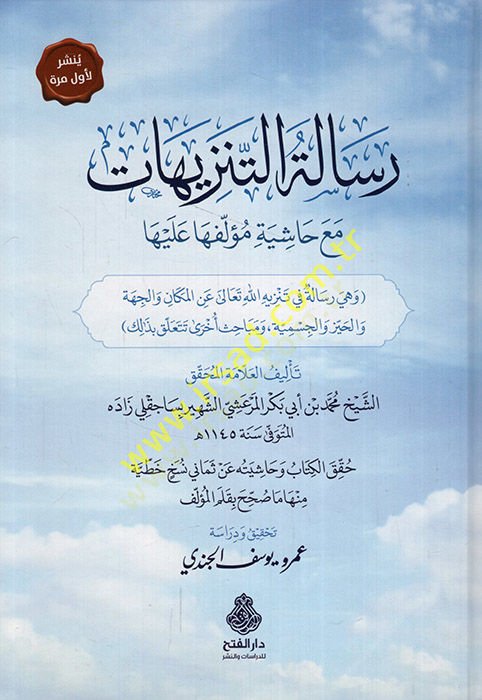 يُنشر
لأول مرة
رسالةُ التنزيهات
مَعَ حَاشِيَةِ مُؤلّفهَا عَلَيْهَا
(وَهيَ رسَالةٌ في تَنْزيهِ اللهِ تَعَالىٰ عَن المَكَانِ وَالجِهَة
وَالحَيّز وَالجِسْمِيّة، وَمَبَاحِث أُخرَىٰ تَتَعَلّق بذَلِك)
تَأليفُ العَلّامَة المُحَقّق
الشّيْخ مُحَمّد بْن أَبي بَكْر المَرْعَشِيّ الشّهِير بِسَاجقْلي زَادَه
المُتَوفّىٰ سَنَة ١١٤٥هـ
حُقّقَ الكِتَابُ وَحَاشِيَتُه عَنْ ثَمَاني نُسَخٍ خَطّيّة
مِنْهَا مَا صُحّحَ بِقَلَم المُؤلّف
تَحْقِيقُ وَدِرَاسَة
عمرو يوسف الجندي
دار الفتح
للدراسات والنشر
www.irsad.com.tr